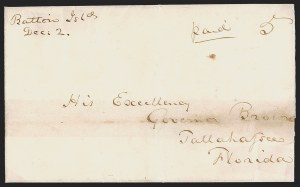 Batton Isld
Dec: 2.
paid 5
His Excellency
Governor Brown
Tallahassee
Florida